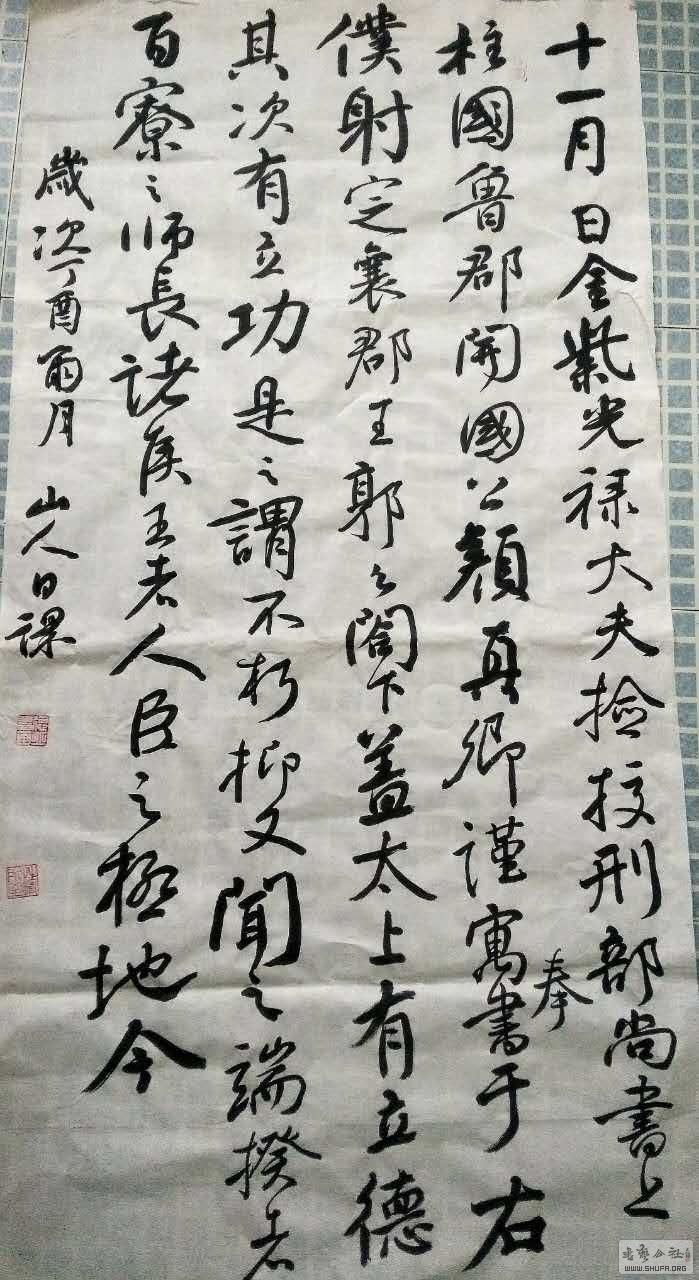 十一月日金紫光禄大夫撿挍刑部尚書上
柱國魯郡開國公顔真卿謹寓書于右
奉
僕射定襄郡王郭公閤下蓋太上有立德
其次有立功是之謂不朽抑又聞之端揆者
百寮之師長諸侯王者人臣之極地今
歲次丁酉雨月 山人日課
WWW.SHUFA.ORG